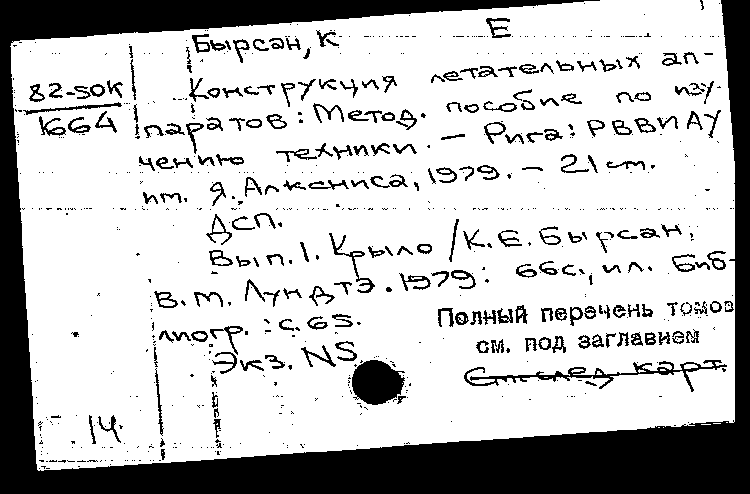 Бырсан, К Е
82-50К
1664
Конструкция летательных ап-
паратов: Метод. пособие по изу-
чению техники. – Рига: РВВИАУ
им. Я. Алксниса, 1979. – 21 см.
ДСП.
Вып. 1. Крыло / К. Е. Бырсан,
В. М. Лундтэ. 1979: 66с., ил. Биб-
лиогр.: с. 65.
Полный перечень томов
см. под заглавием
Экз. NS
См. след. карт.
14.